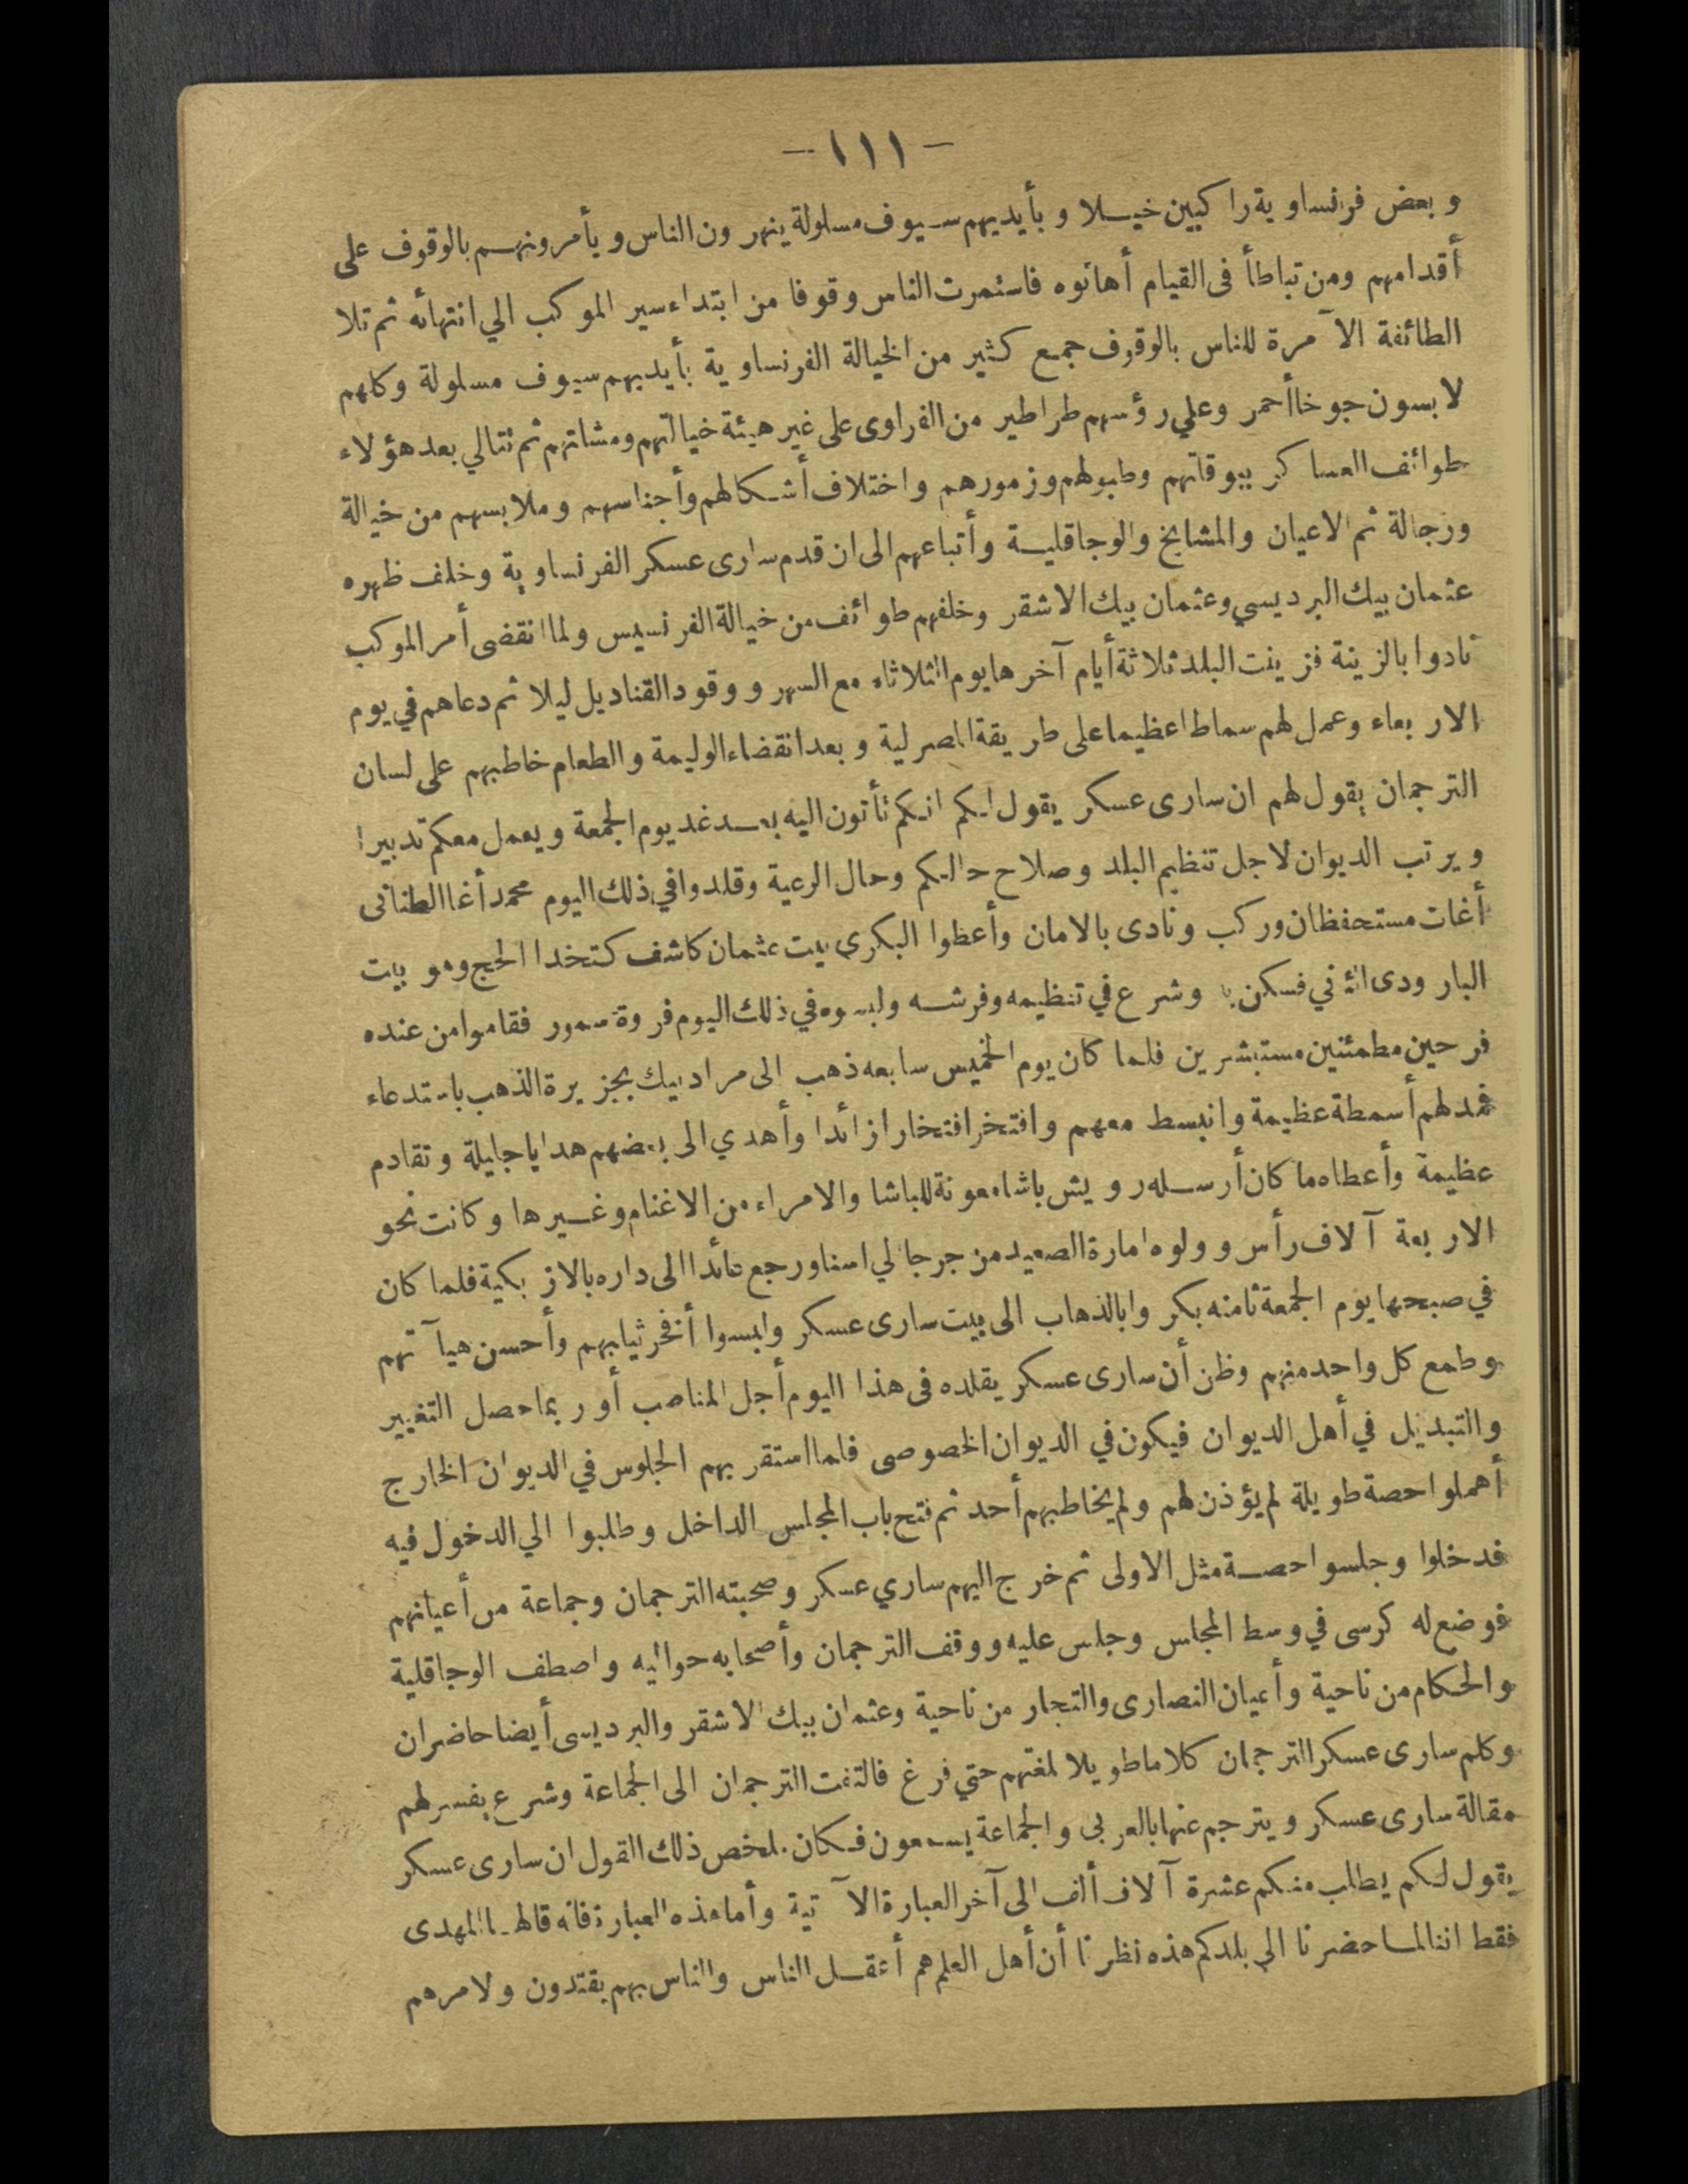 - ١١١ -
و بعض فرنساوية راكبين خيلا و بأيديهم سيوف مسلولة ينهرون الناس و يأمرونهم بالوقوف على
أقدامهم ومن تباطأ فى القيام أهانوه فاستمرت الناس وقوفا من ابتداء سير الموكب الي انتهائه ثم تلا
الطائفة الآمرة للناس بالوقوف جمع كثير من الخيالة الفرنساوية بأيديهم سيوف مسلولة وكلهم
لابسون جوخا أحمر وعلي رؤسهم طراطير من الفراوى على غير هيئة خيالتهم ومشاتهم ثم تتالي بعد هؤلاء
طوائف العساكر ببوقاتهم وطبولهم وزمورهم واختلاف أشكالهم وأجناسهم وملابسهم من خيالة
ورجالة ثم الاعيان والمشايخ والوجاقلية وأتباعهم الى ان قدم سارى عسكر الفرنساوية وخلف ظهره
عثمان بيك البرديسي وعثمان بيك الاشقر وخلفهم طوائف من خيالة الفرنسيس ولما انقضى أمر الموكب
نادوا بالزينة فزينت البلد ثلاثة أيام آخرها يوم الثلاثاء مع السهر ووقود القناديل ليلا ثم دعاهم في يوم
الاربعاء وعمل لهم سماطا عظيما على طريقة المصرلية و بعد انقضاء الوليمة والطعام خاطبهم على لسان
الترجمان يقول لهم ان سارى عسكر يقول لكم انكم تأتون اليه بعد غد يوم الجمعة ويعمل معكم تدبيرا
ويرتب الديوان لاجل تنظيم البلد وصلاح حالكم وحال الرعية وقلدوا في ذلك اليوم محمد أغا الطنانى
أغات مستحفظان وركب ونادى بالامان وأعطوا البكرى بيت عثمان كاشف كتخدا الحج وهو بيت
البارودى الثاني فسكن به وشرع في تنظيمه وفرشه ولبسوه في ذلك اليوم فروة سمور فقاموا من عنده
فرحين مطمئنين مستبشرين فلما كان يوم الخميس سابعه ذهب الى مراد بيك بجزيرة الذهب باستدعاء
فمد لهم أسمطة عظيمة وانبسط معهم وافتخر افتخارا زائدا وأهدي الى بعضهم هدايا جليلة وتقادم
عظيمة وأعطاه ما كان أرسله درويش باشا معونة للباشا والامراء من الاغنام وغيرها وكانت نحو
الاربعة آلاف رأس وولوه امارة الصعيد من جرجا الي اسنا ورجع عائدا الى داره بالازبكية فلما كان
في صبحها يوم الجمعة ثامنه بكروا بالذهاب الى بيت سارى عسكر ولبسوا أفخر ثيابهم وأحسن هيآتهم
وطمع كل واحد منهم وظن أن سارى عسكر يقلده فى هذا اليوم أجل المناصب أو ربما حصل التغيير
والتبديل في أهل الديوان فيكون في الديوان الخصوصى فلما استقر بهم الجلوس في الديوان الخارج
أهملوا حصة طويلة لم يؤذن لهم ولم يخاطبهم أحد ثم فتح باب المجلس الداخل وطلبوا الي الدخول فيه
فدخلوا وجلسوا حصة مثل الاولى ثم خرج اليهم ساري عسكر وصحبته الترجمان وجماعة من أعيانهم
فوضع له كرسى في وسط المجلس وجلس عليه ووقف الترجمان وأصحابه حواليه واصطف الوجاقلية
والحكام من ناحية وأعيان النصارى والتجار من ناحية وعثمان بيك الاشقر والبرديسى أيضا حاضران
وكلم سارى عسكر الترجمان كلاما طويلا بلغتهم حتي فرغ فالتفت الترجمان الى الجماعة وشرع يفسر لهم
مقالة سارى عسكر ويترجم عنها بالعربى والجماعة يسمعون فكان ملخص ذلك القول ان سارى عسكر
يقول لكم يطلب منكم عشرة آلاف ألف الى آخر العبارة الآتية وأما هذه العبارة فانه قالها المهدى
فقط اننا لما حضرنا الي بلدكم هذه نظرنا أن أهل العلم هم أعقل الناس والناس بهم يقتدون ولامرهم